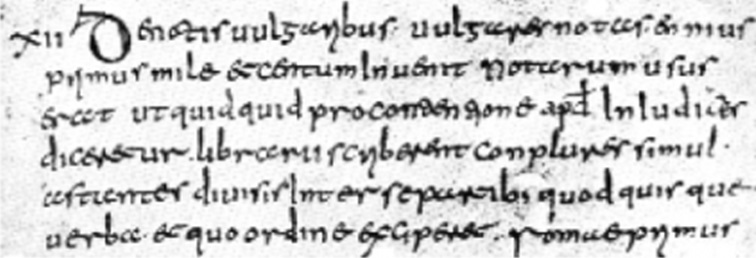 xii De notis uulgaribus. uulgares notas ennius
primus mile et centum inuenit notarum usus
erat ut quidquid pro contentione apd in iudiciis
diceretur. librarii scriberent conplures simul.
astantes diuisis inter se partibus quod quisque
uerba. et quo ordine exciperet. Romae primus